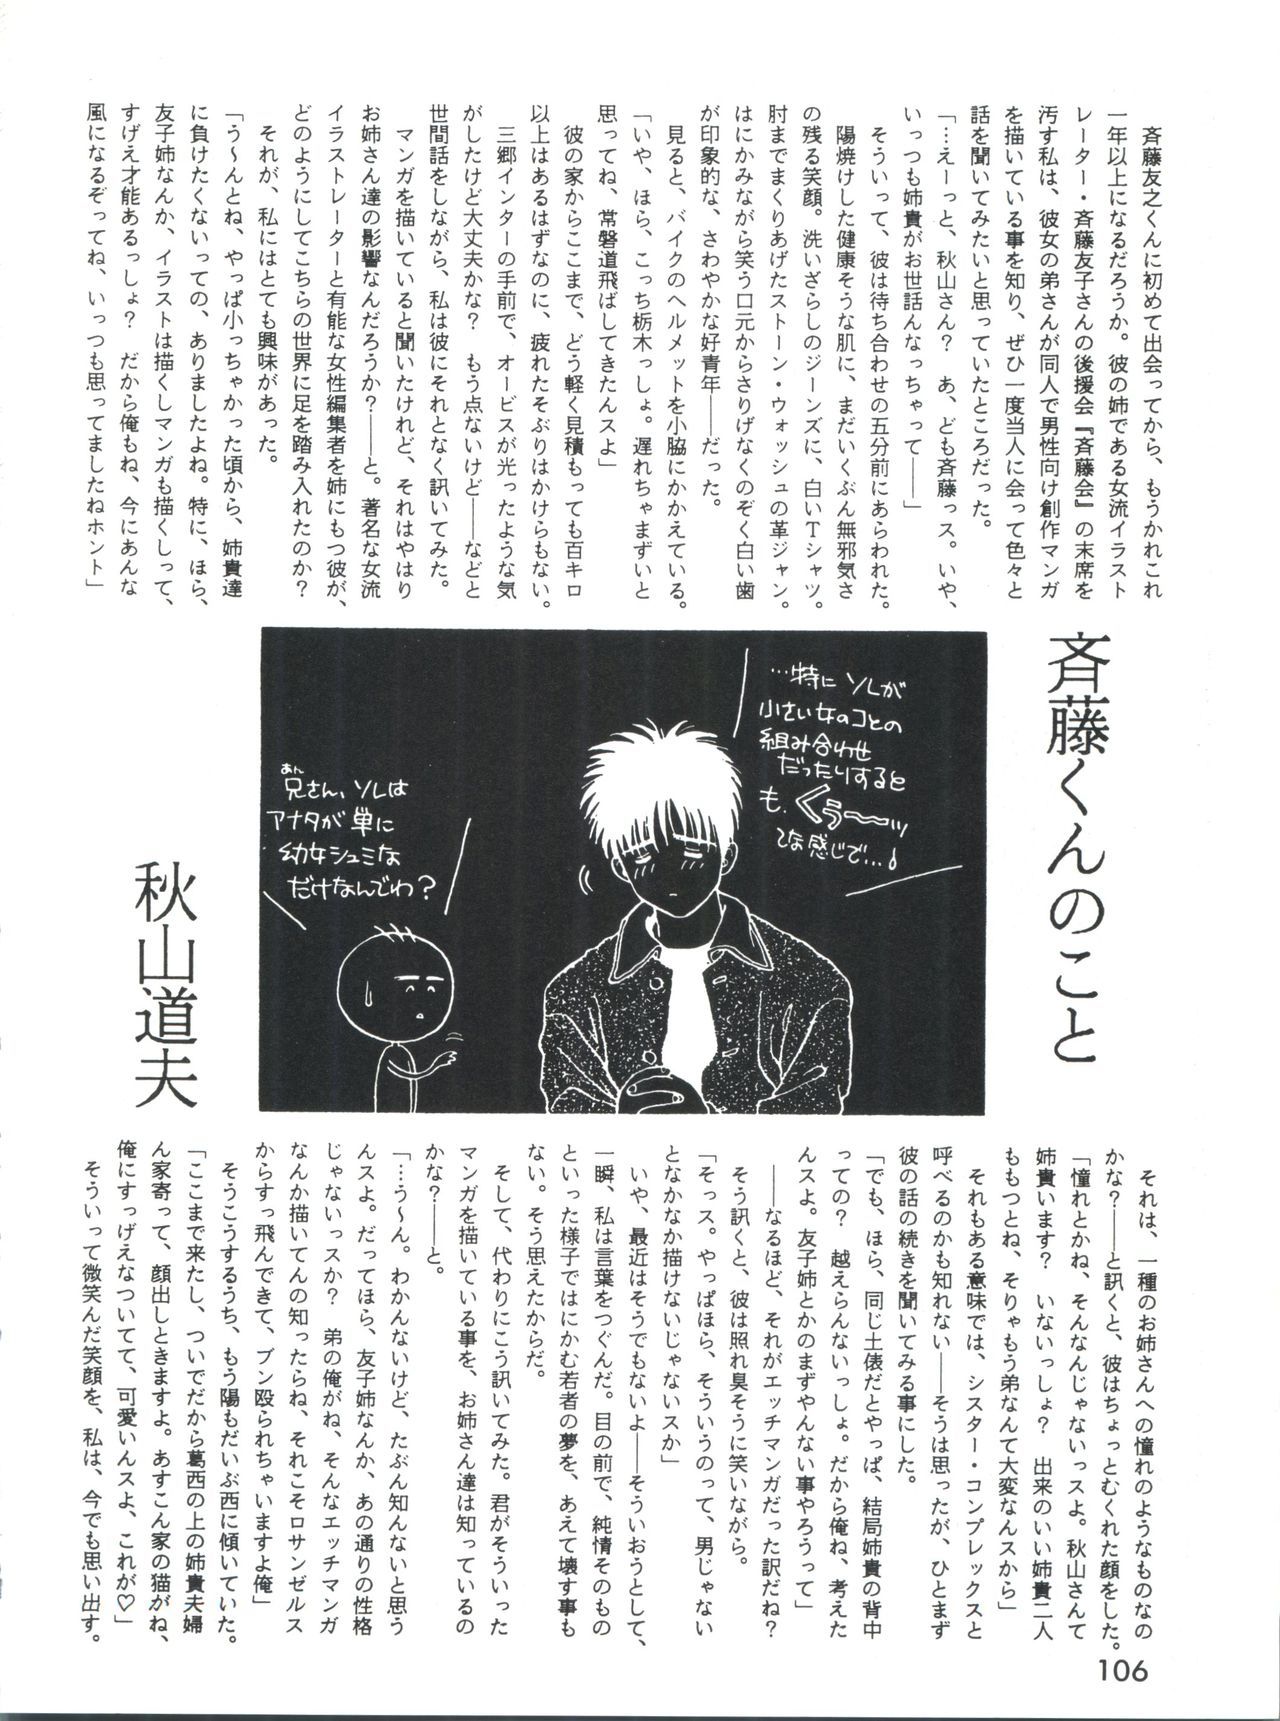 斉藤くんのこと
秋山道夫
斉藤友之くんに初めて出会ってから、もうかれこれ
一年以上になるだろうか。彼の姉である女流イラスト
レーター・斉藤友子さんの後援会『斉藤会』の末席を
汚す私は、彼女の弟さんが同人で男性向け創作マンガ
を描いている事を知り、ぜひ一度当人に会って色々と
話を聞いてみたいと思っていたところだった。
「…えーっと、秋山さん？　あ、ども斉藤っス。いや、
いっつも姉貴がお世話んなっちゃって――」
そういって、彼は待ち合わせの五分前にあらわれた。
陽焼けした健康そうな肌に、まだいくぶん無邪気さ
の残る笑顔。洗いざらしのジーンズに、白いTシャツ。
肘までまくりあげたストーン・ウォッシュの革ジャン。
はにかみながら笑う口元からさりげなくのぞく白い歯
が印象的な、さわやかな好青年――だった。
見ると、バイクのヘルメットを小脇にかかえている。
「いや、ほら、こっち栃木っしょ。遅れちゃまずいと
思ってね、常磐道飛ばしてきたんスよ」
彼の家からここまで、どう軽く見積もっても百キロ
以上はあるはずなのに、疲れたそぶりはかけらもない。
三郷インターの手前で、オービスが光ったような気
がしたけど大丈夫かな？　もう点ないけど――などと
世間話をしながら、私は彼にそれとなく訊いてみた。
マンガを描いていると聞いたけれど、それはやはり
お姉さん達の影響なんだろうか？――と。著名な女流
イラストレーターと有能な女性編集者を姉にもつ彼が、
どのようにしてこちらの世界に足を踏み入れたのか？
それが、私にはとても興味があった。
「う～んとね、やっぱ小っちゃかった頃から、姉貴達
に負けたくないっての、ありましたよね。特に、ほら、
友子姉なんか、イラストは描くしマンガも描くしって、
すげえ才能あるっしょ？　だから俺もね、今にあんな
風になるぞってね、いっつも思ってましたねホント」
…特にソレが
小さい女のコとの
組み合わせ
だったりすると
も、くぅ～～ッ
てな感じで…！
あん
兄さん、ソレは
アナタが単に
幼女シュミな
だけなんでわ？
それは、一種のお姉さんへの憧れのようなものなの
かな？――と訊くと、彼はちょっとむくれた顔をした。
「憧れとかね、そんなんじゃないっスよ。秋山さんて
姉貴います？　いないっしょ？　出来のいい姉貴二人
ももつとね、そりゃもう弟なんて大変なんスから」
それもある意味では、シスター・コンプレックスと
呼べるのかも知れない――そうは思ったが、ひとまず
彼の話の続きを聞いてみる事にした。
「でも、ほら、同じ土俵だとやっぱ、結局姉貴の背中
っての？　越えらんないっしょ。だから俺ね、考えた
んスよ。友子姉とかのまずやんない事やろうって」
――なるほど、それがエッチマンガだった訳だね？
そう訊くと、彼は照れ臭そうに笑いながら。
「そっス。やっぱほら、そういうのって、男じゃない
となかなか描けないじゃないスか」
いや、最近はそうでもないよ――そういいおうとして、
一瞬、私は言葉をつぐんだ。目の前で、純情そのもの
といった様子ではにかむ若者の夢を、あえて壊す事も
ない。そう思えたからだ。
そして、代わりにこう訊いてみた。君がそういった
マンガを描いている事を、お姉さん達は知っているの
かな？――と。
「…う～ん。わかんないけど、たぶん知んないと思う
んスよ。だってほら、友子姉なんか、あの通りの性格
じゃないっスか？　弟の俺がね、そんなエッチマンガ
なんか描いてんの知ったらね、それこそロサンゼルス
からすっ飛んできて、ブン殴られちゃいますよ俺」
そうこうするうち、もう陽もだいぶ西に傾いていた。
「ここまで来たし、ついでだから葛西の上の姉貴夫婦
ん家寄って、顔出しときますよ。あすこん家の猫がね、
俺にすっげえなついてて、可愛いんスよ、これが♡」
そういって微笑んだ笑顔を、私は、今でも思い出す。
106